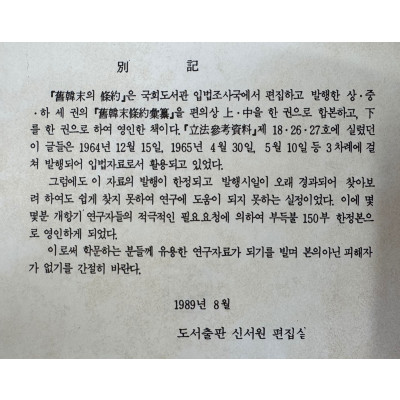 別 記
『舊韓末의 條約』은 국회도서관 입법조사국에서 편집하고 발행한 상·중
·하 세 권의『舊韓末條約彙纂』을 편의상 上·中을 한 권으로 합본하고, 下
를 한 권으로 하여 영인한 책이다.『立法參考資料』제 18·26·27호에 실렸던
이 글들은 1964년 12월 15일, 1965년 4월 30일, 5월 10일 등 3차례에 걸
쳐 발행되어 입법자료로서 활용되고 있었다.
그럼에도 이 자료의 발행이 한정되고 발행시일이 오래 경과되어 찾아보
려 하여도 쉽게 찾지 못하여 연구에 도움이 되지 못하는 실정이었다. 이에 몇
몇분 개항기 연구자들의 적극적인 필요.요청에 의하여 부득불 150부 한정본으
로 영인하게 되었다.
이로써 학문하는 분들께 유용한 연구자료가 되기를 빌며 본의아닌 피해자
가 없기를 간절히 바란다.
1989년 8월
도서출판 신서원 편집실